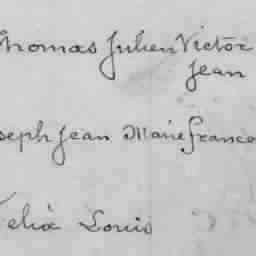 Thomas Julien Victor
Jean
Joseph Jean Marie Franco
Felix Louis